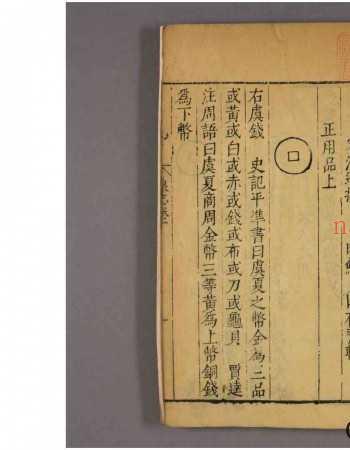 正用品上
右虞錢　史記平準書曰虞夏之幣金爲三品
或黃或白或赤或錢或布或刀或龜貝　賈逵
注周語曰虞夏商周金幣三等黃爲上幣銅錢
爲下幣